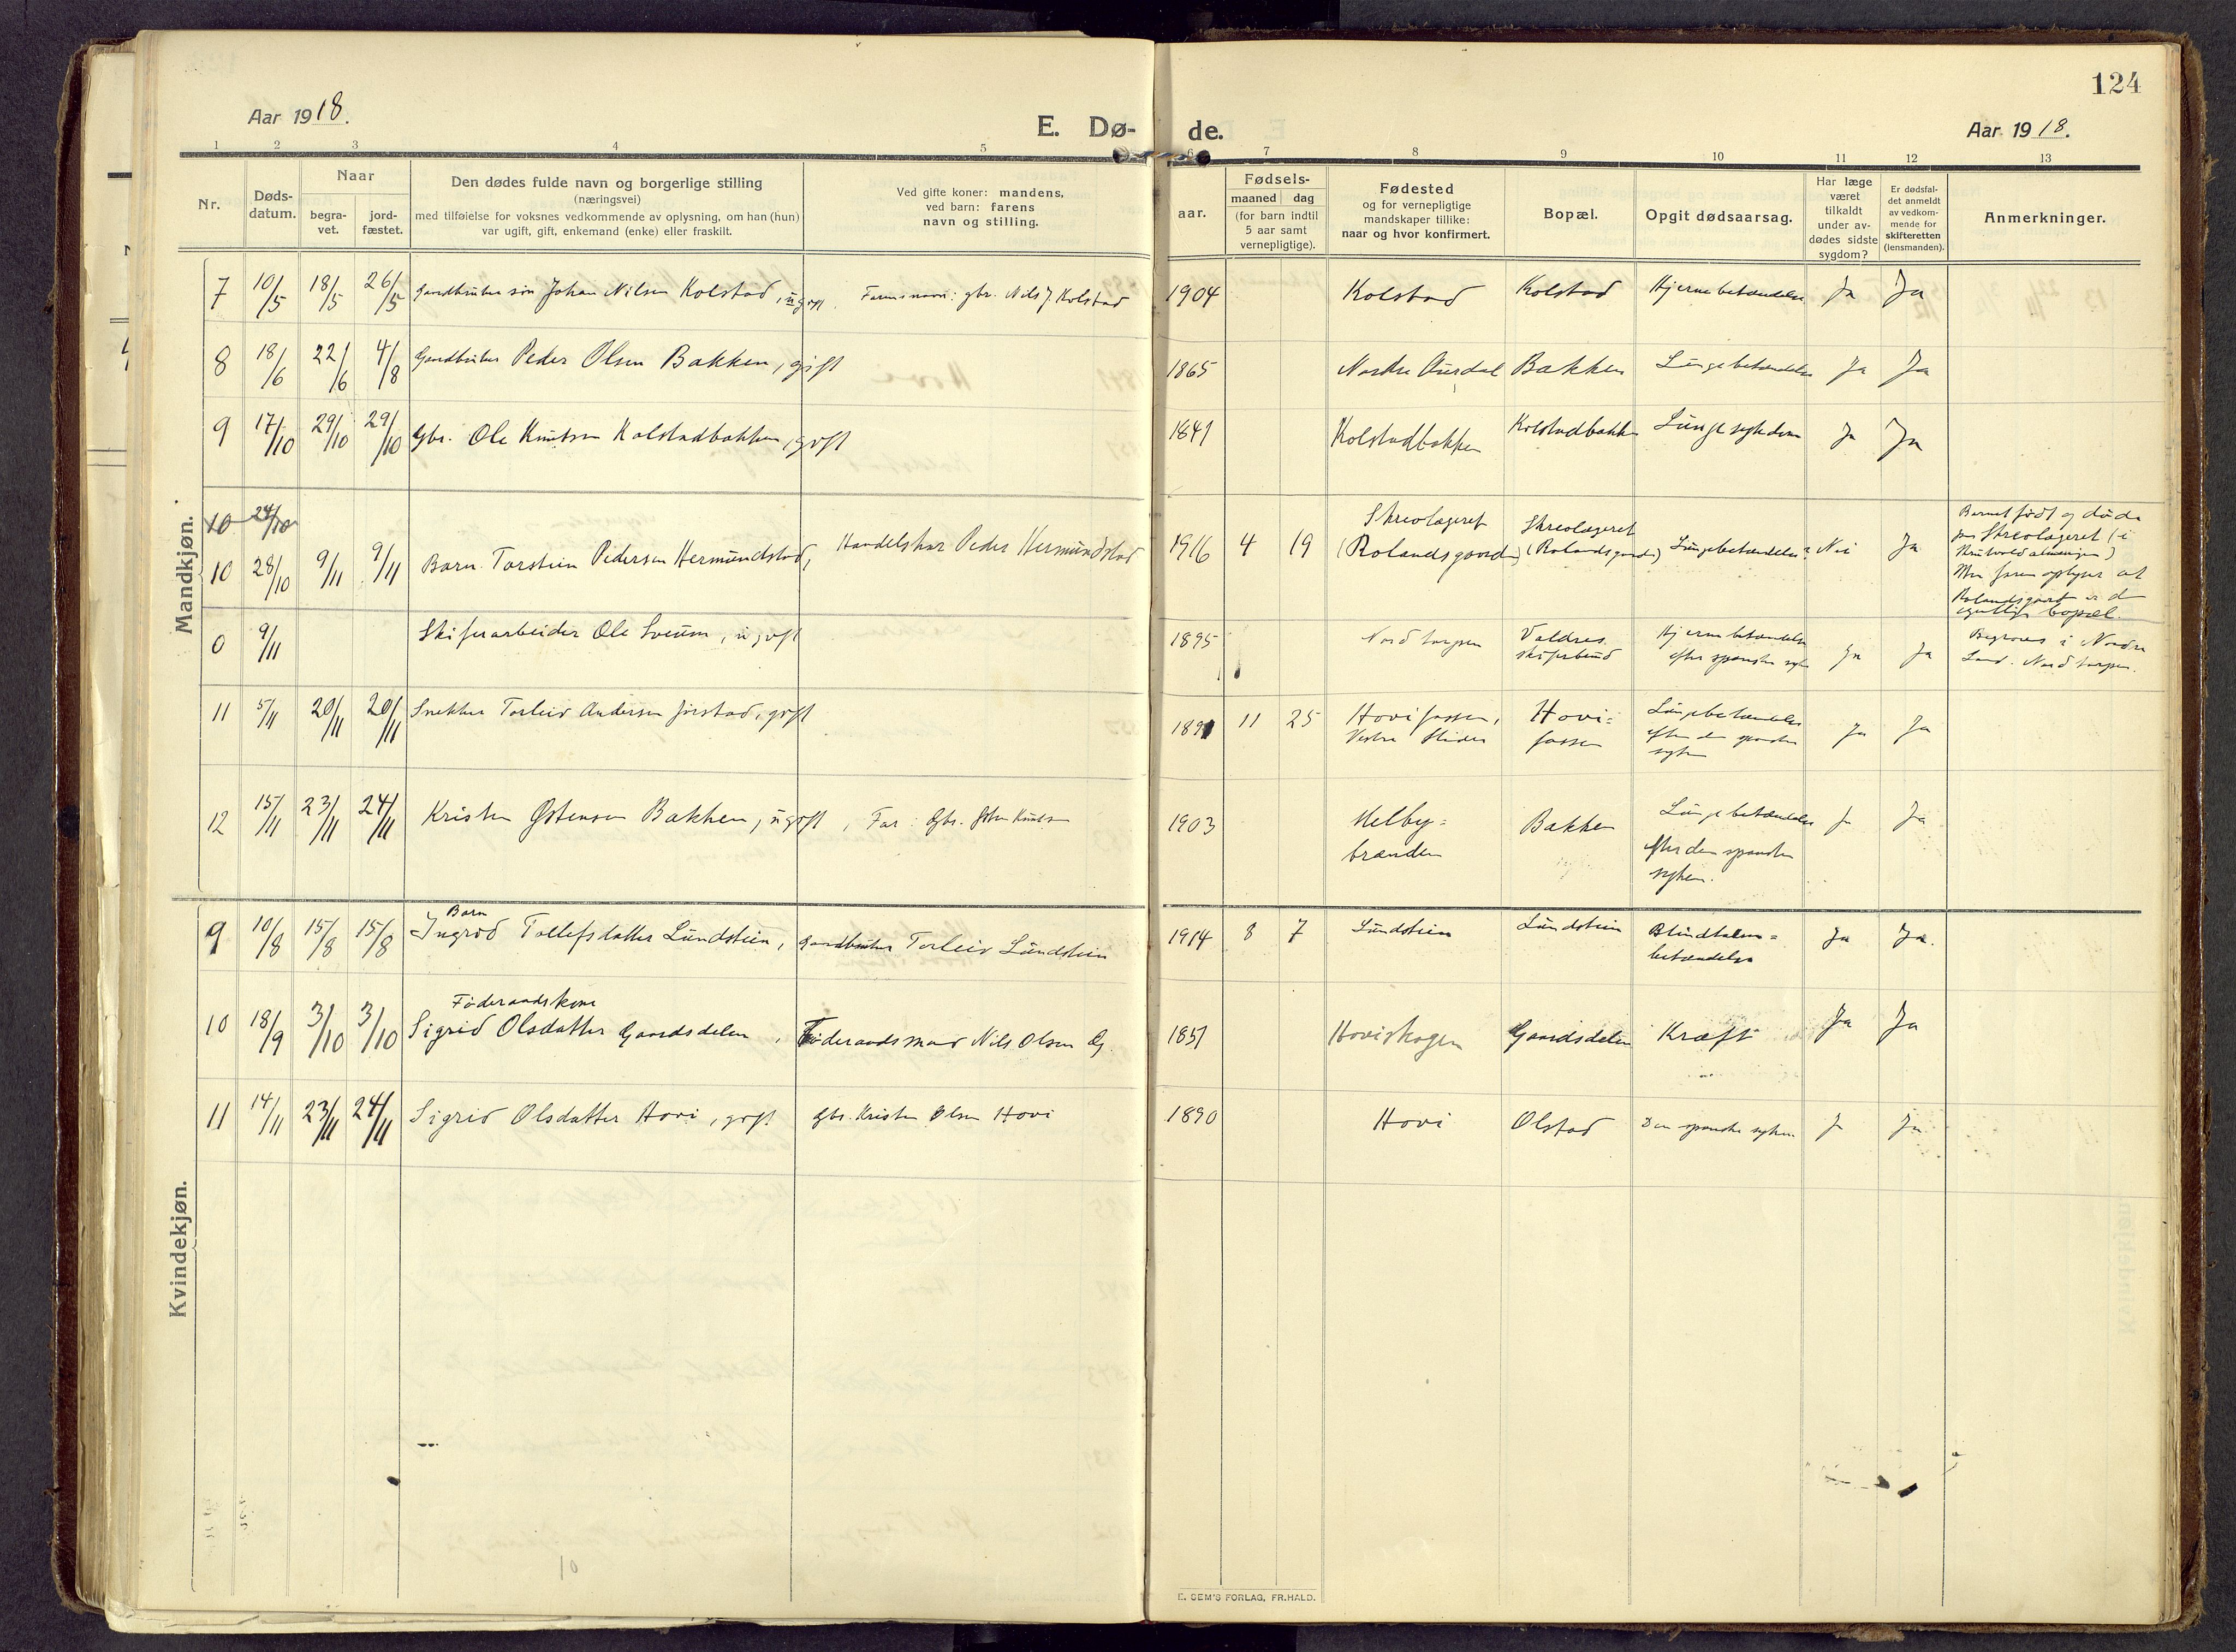 124
Aar 1918.
E. Dø-
de.
Aar 1918.
1 2 3 4 5 6 7 8 9 10 11 12 13
Nr.
Døds-
datum.
Naar
begra-
vet.
jord-
fæstet.
Den dødes fulde navn og borgerlige stilling
(næringsvei)
med tilføielse for voksnes vedkommende av oplysning, om han (hun)
var ugift, gift, enkemand (enke) eller fraskilt.
Ved gifte koner: mandens,
ved barn: farens
navn og stilling.
Fødsels-
aar.
maaned dag
(for barn indtil
5 aar samt
vernepligtige).
Fødested
og for vernepligtige
mandskaper tillike:
naar og hvor konfirmert.
Bopæl.
Opgit dødsaarsag.
Har læge
været
tilkaldt
under av-
dødes sidste
sygdom?
Er dødsfal-
det anmeldt
av vedkom-
mende for
skifteretten
(lensmanden).
Anmerkninger.
Mandkjøn.
7 10/5 18/5 26/5 Gaardbruker søn Johan Nilsen Kolstad, ugift. Farens navn: gbr. Nils J. Kolstad 1904 Kolstad Kolstad Hjernebetændelse Ja Ja
8 18/6 22/6 4/8 Gaardbruker Peder Olsen Bakken, gift 1865 Nordre Aurdal Bakken Lungebetændelse Ja Ja
9 17/10 29/10 29/10 Gbr. Ole Knutsen Kolstadbakken, gift 1841 Kolstadbakken Kolstadbakken Lungesygdom Ja Ja
10 24/10
10 28/10 9/11 9/11 Barn Torstein Pedersen Hermundstad, Handelskar Peder Hermundstad 1916 4 19
Skreolægeret
(Rolandsgaard)
Skreolægeret
(Rolandsgaard)
Lungebetændelse? Nei Ja
Barnet født og døde
paa Skreolægeret (i
almenningen)
Men faren oplyser at
Rolandsgaard er d
egentlige bopæl.
0 9/11 Skiferarbeider Ole Sveum, ugift 1895 Nord torpen
Valdres
skiferbrud
Hjernebetændelse
efter spanske syke
Ja Ja
Begraves i Nordre
Land. Nord torpen.
11 5/11 20/11 20/11 Snekker Torleiv Andersen, gift 1891 11 25
Hovifossen,
Vestre Slidre
Hovi=
fossen
Lungebetændelse
efter den spanske
syken
Ja Ja
12 15/11 23/11 24/11 Kristen Østensen Bakken, ugift, Far: Gbr. Østen Knutsen 1903
Melby=
branden
Bakken
Lungebetændelse
efter den spanske
syken.
Ja Ja
Kvindekjøn.
9 10/8 15/8 15/8
Barn
Ingrid Tollefsdatter Lundstein, Gaardbruker Torleiv Lundstein 1914 8 7 Lundstein Lundstein
Blindtarm=
betændelse
Ja Ja.
10 18/9 3/10 3/10
Føderaadskone
Sigrid Olsdatter Gaardsdelen, Føderaadsmand Nils Olsen G. 1851 Hoviskogen Gaardsdelen Kræft Ja Ja
11 14/11 23/11 24/11 Sigrid Olsdatter Hovi, gift Gbr. Kristen Olsen Hovi 1890 Hovi Olstad Den spanske syken Ja Ja
10
E. SEM'S FORLAG, FR.HALD.